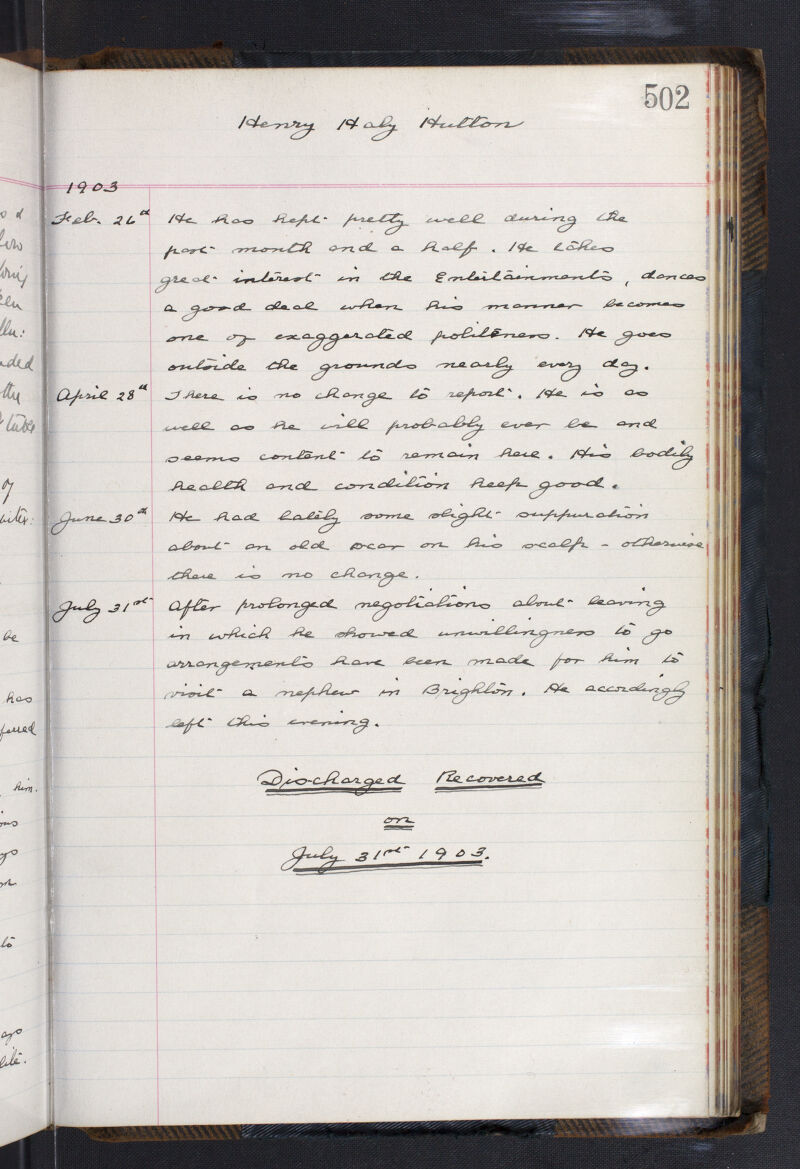 502
Henry Haly Hutton
1903
Feb. 26th He has kept pretty well during the
past month and a half. He takes
great interest in the Entertainments, dances
a good deal when his manner becomes
one of exaggerated politeness. He goes
outside the grounds nearly every day.
April 28th There is no change to report. He is as
well as he will probably ever be and
seems content to remain here. His bodily
health and condition keep good.
June 30th He had lately some slight suppuration
about an old scar on his scalp - otherwise
there is no change.
July 31st After prolonged negotiations about leaving
in which he showed unwillingness to go
arrangements have been made for him to
visit a nephew in Brighton. He accordingly
left this evening.
Discharged Recovered
on
July 31st 1903.